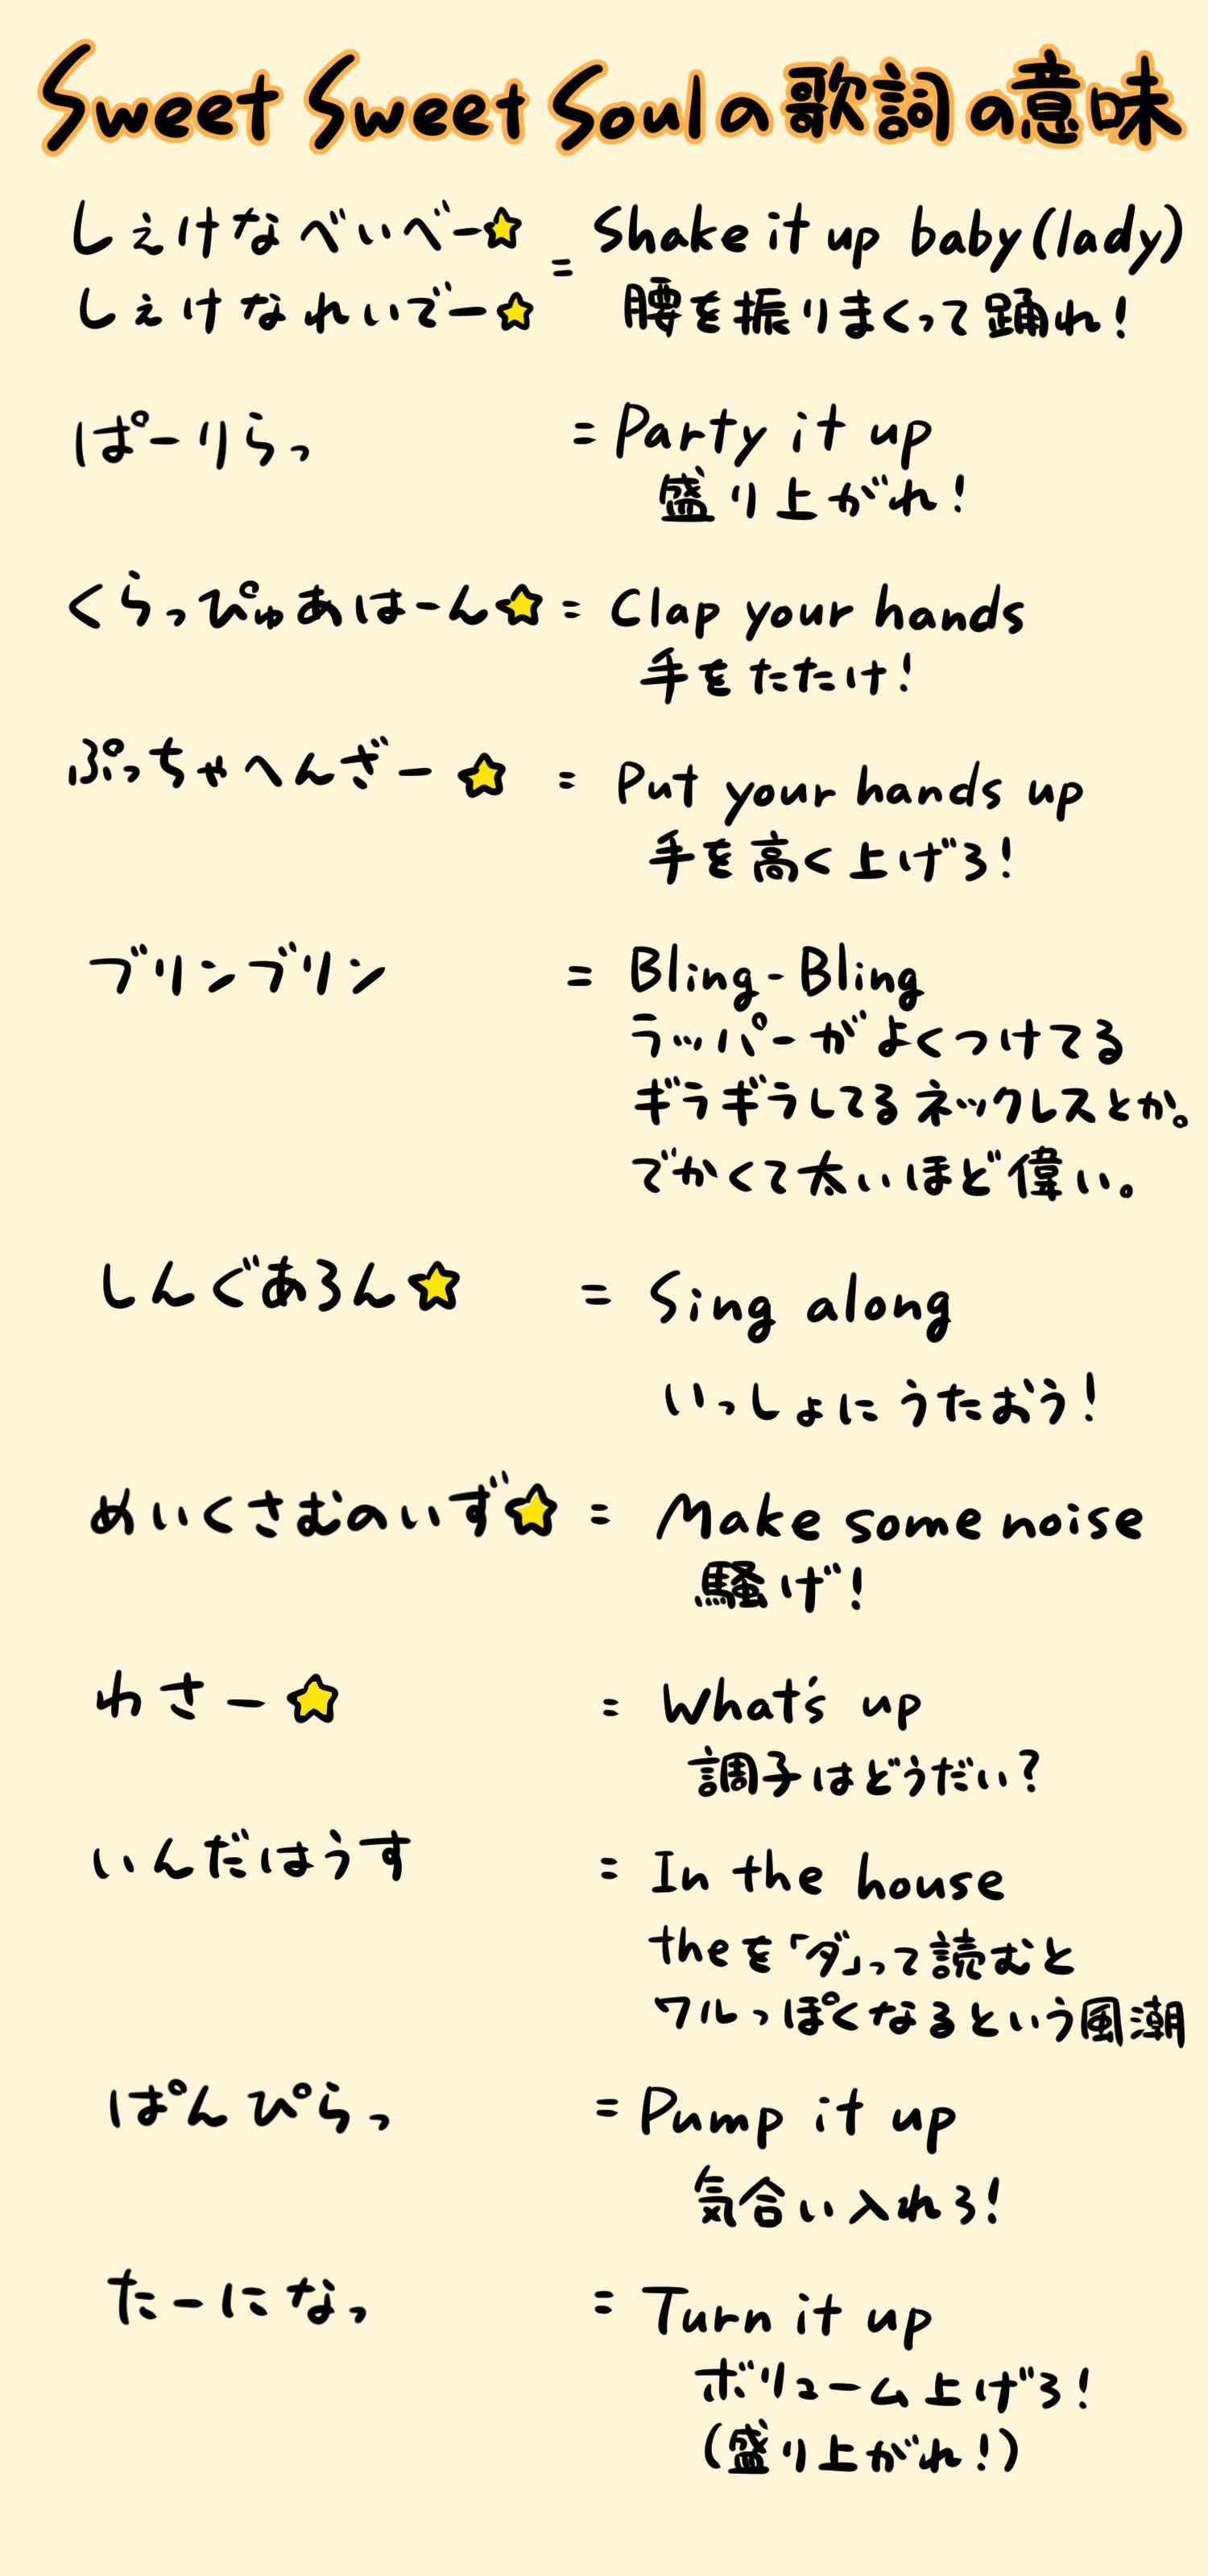 Sweet Sweet Soulの歌詞の意味
しぇけなべいべー☆
しぇけなれいでー☆
= Shake it up baby(lady)
腰を振りまくって踊れ!
ぱーりらっ = Party it up
盛り上がれ!
くらっぴゅあはーん☆ = Clap your hands
手をたたけ!
ぷっちゃへんざー☆ = Put your hands up
手を高く上げろ!
ブリンブリン = Bling-Bling
ラッパーがよくつけてる
ギラギラしてるネックレスとか。
でかくて太いほど偉い。
しんぐあろん☆ = Sing along
いっしょにうたおう!
めいくさむのいず☆ = Make some noise
騒げ!
わさー☆ = What's up
調子はどうだい?
いんだはうす = In the house
theを「ダ」って読むと
ワルっぽくなるという風潮
ぱんぴらっ = Pump it up
気合い入れろ!
たーになっ = Turn it up
ボリューム上げろ!
(盛り上がれ!)